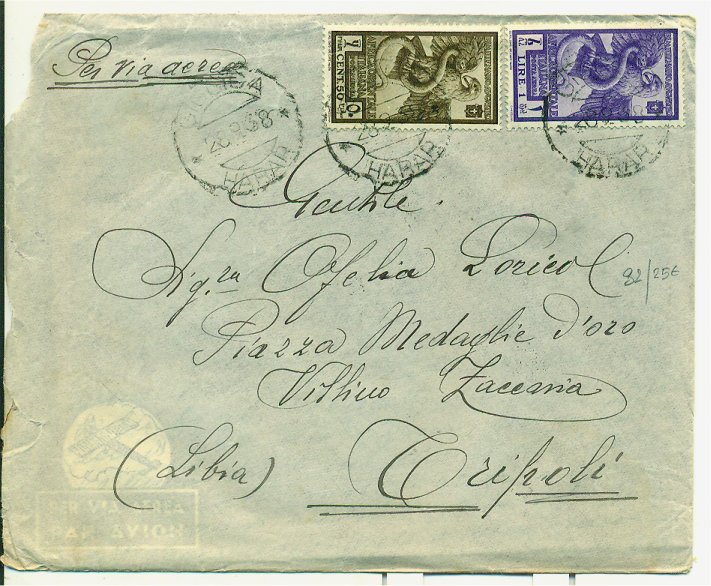 Per via aerea
CENT. 50
LIRE 1
28.9.38
HARAR
HARAR
HARAR
Gentile.
Sig.ra Ofelia
82/25€
Piazza Medaglie d'oro
Villino Zaccaria
(Libia) Tripoli
PER VIA AEREA
PAR AVION